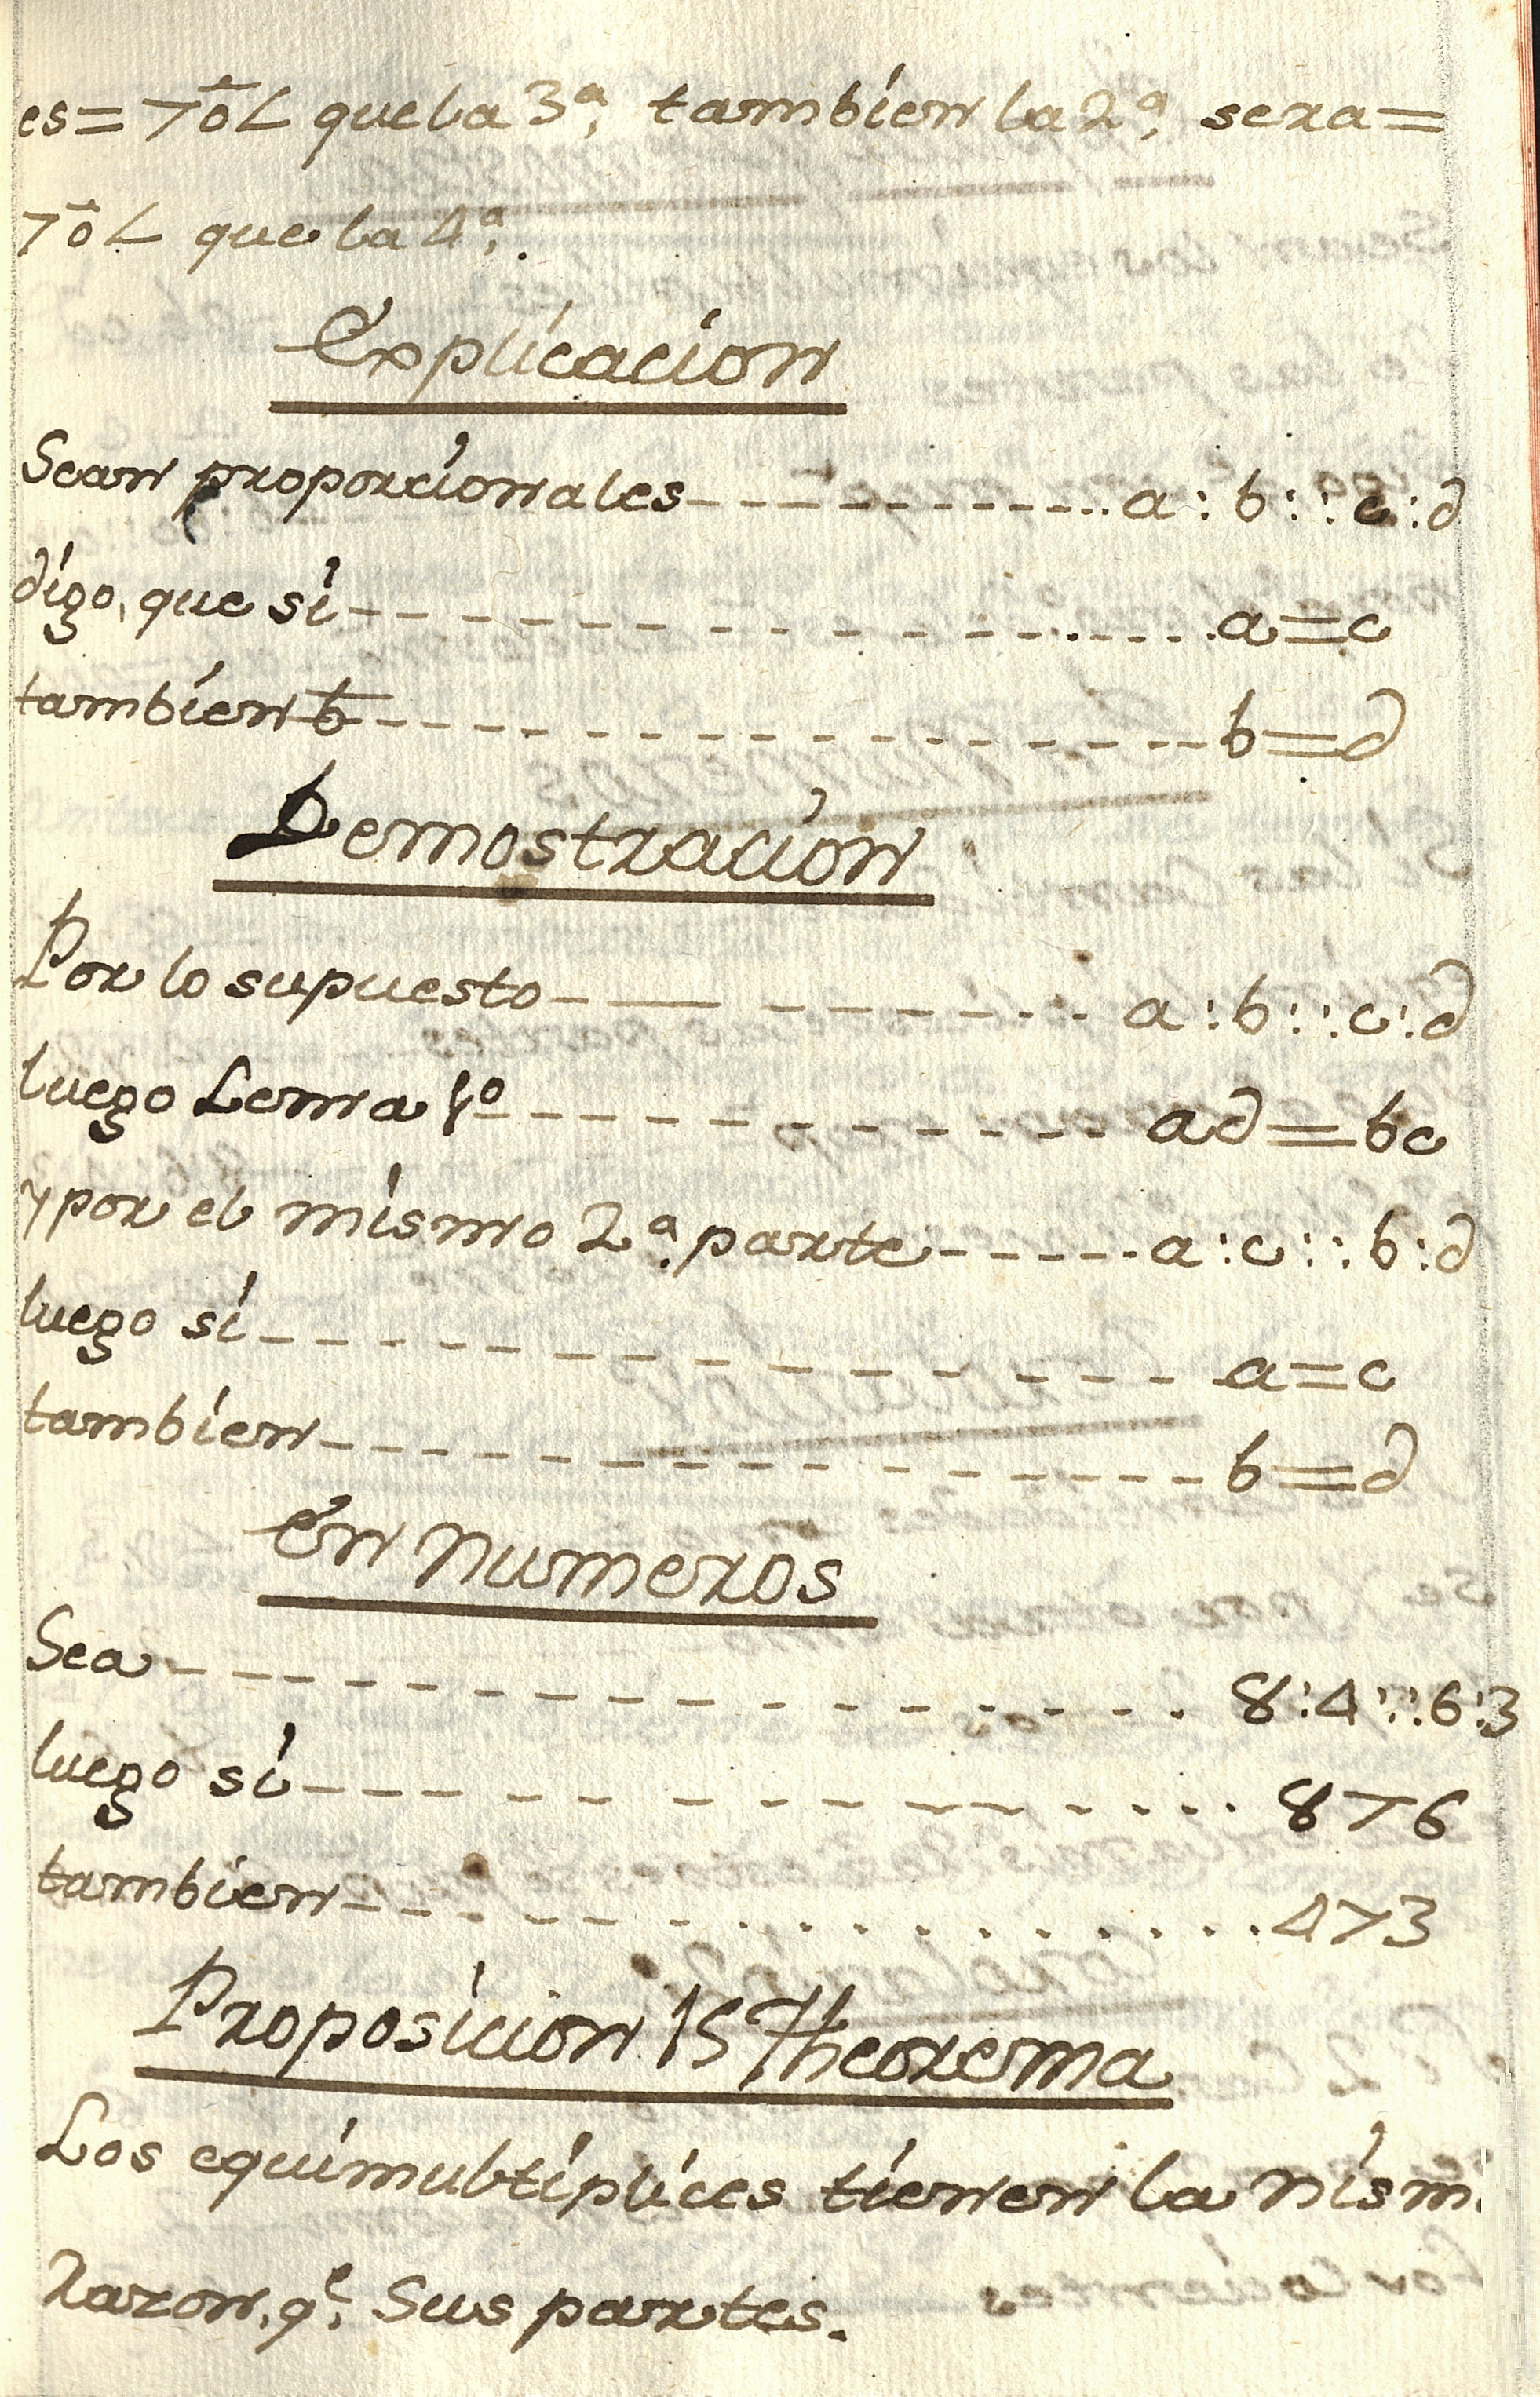 es = > ō < que la 3ª, tambien la 2ª, sera =
> ō < que la 4ª.
Explicacion
Sean proporcionales - - - - - - - - - a : b :: c : d
digo, que si - - - - - - - - - - - - a = c
tambien b - - - - - - - - - - - - b = d
Demostracion
Por lo supuesto - - - - - - - - - a : b :: c : d
luego Lema 1º - - - - - - - - - ad = bc
y por el mismo 2ª parte - - - - - a : c :: b : d
luego si - - - - - - - - - - - - a = c
tambien - - - - - - - - - - - - b = d
En numeros
Sea - - - - - - - - - - - - 8 : 4 :: 6 : 3
luego si - - - - - - - - - - - - 8 > 6
tambien - - - - - - - - - - - - 4 > 3
Proposicion 15 Theorema
Los equimultiplices tienen la mism
razon, qe. Sus partes.